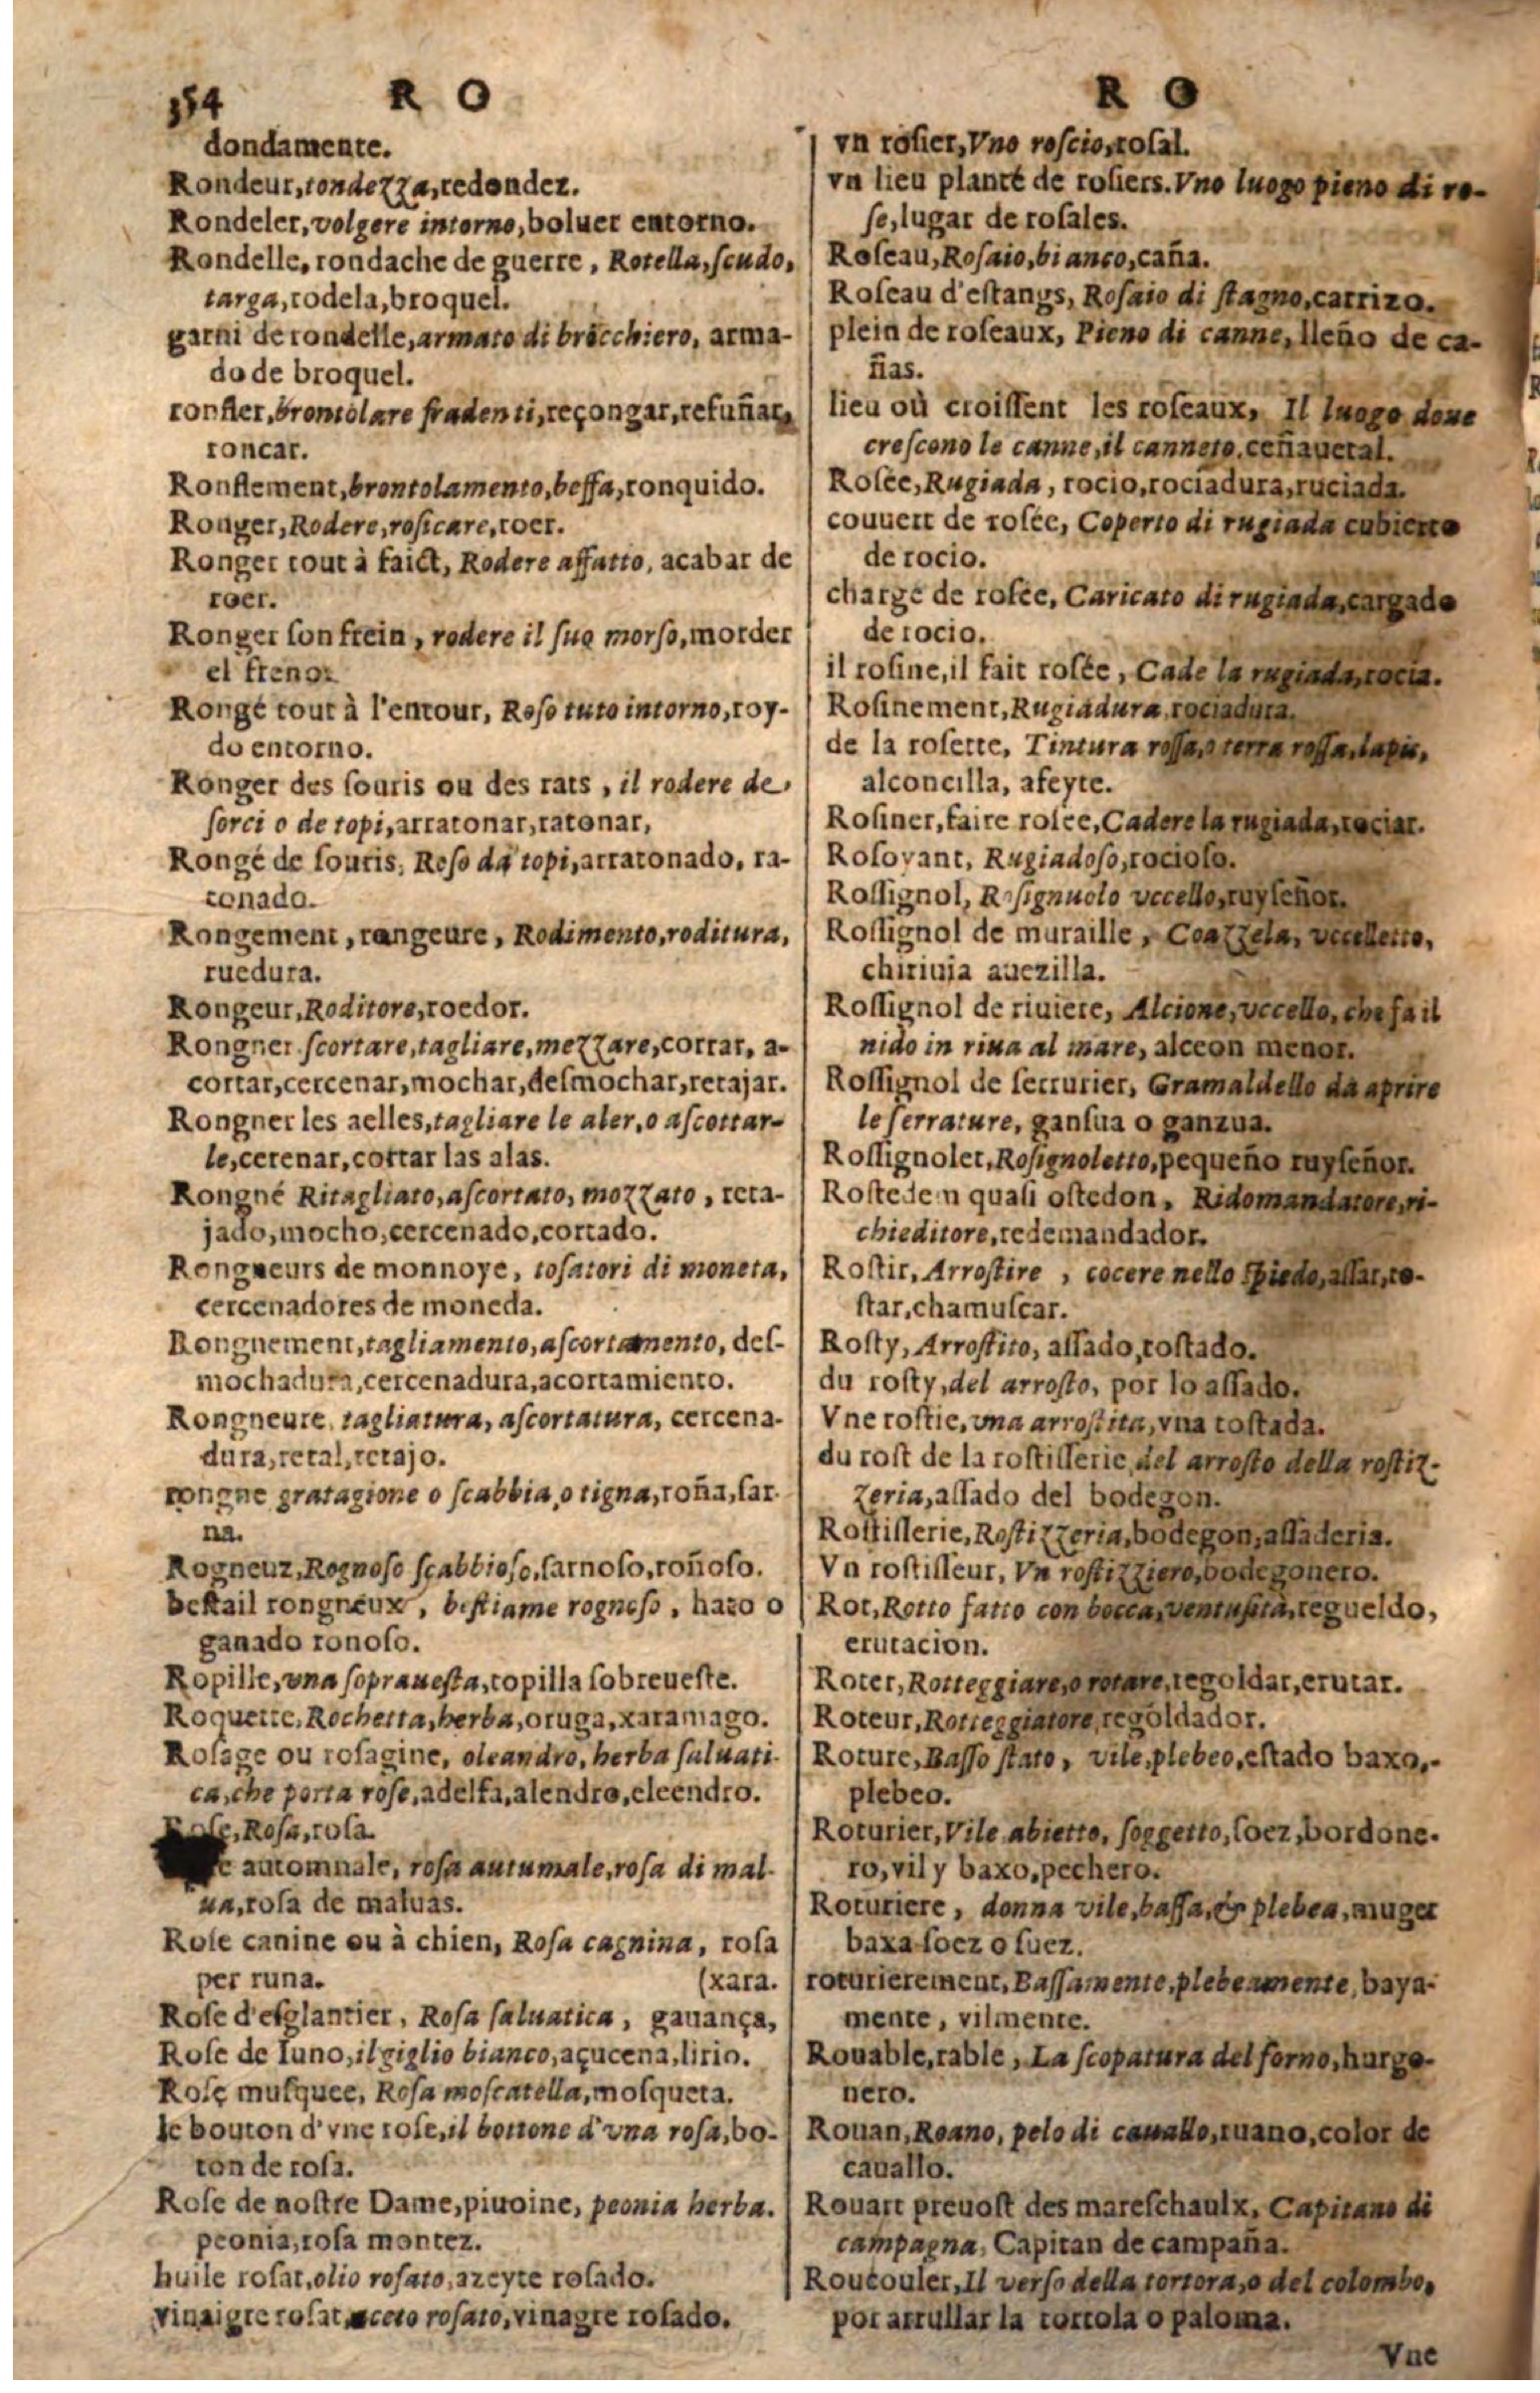 354 R O
dondamente.
Rondeur, tondezza, redondez.
Rondeler, volgere intorno, boluer entorno.
Rondelle, rondache de guerre, Rotella, ſcudo,
targa, rodela, broquel.
garni de rondelle, armato di brocchiero, arma-
do de broquel.
ronfler, brontolare fra denti, reçongar, refuñar,
roncar.
Ronflement, brontolamento, beffa, ronquido.
Ronger, Rodere, roſicare, roer.
Ronger tout à faict, Rodere affatto, acabar de
roer.
Ronger ſon frein, rodere il ſuo morſo, morder
el freno.
Rongé tout à l'entour, Roſo tuto intorno, roy-
do entorno.
Ronger des ſouris ou des rats, il rodere de
ſorci o de topi, arratonar, ratonar,
Rongé de ſouris, Roſo da topi, arratonado, ra-
tonado.
Rongement, rangeure, Rodimento, roditura,
ruedura.
Rongeur, Roditore, roedor.
Rongner ſcortare, tagliare, mezzare, cortar, a-
cortar, cercenar, mochar, deſmochar, retajar.
Rongner les aelles, tagliare le aler, o aſcottar-
le, cerenar, cortar las alas.
Rongné Ritagliato, aſcortato, mozzato, reta-
jado, mocho, cercenado, cortado.
Rongneurs de monnoye, toſatori di moneta,
cercenadores de moneda.
Rongnement, tagliamento, aſcortamento, deſ-
mochadura, cercenadura, acortamiento.
Rongneure, tagliatura, aſcortatura, cercena-
dura, retal, retajo.
rongne gratagione o ſcabbia, o tigna, roña, ſar-
na.
Rogneuz, Rognoſo ſcabbioſo, ſarnoſo, roñoſo.
beſtail rongneux, beſtiame rognoſo, hato o
ganado ronoſo.
Ropille, vna ſoprauеſta, ropilla ſobreueſte.
Roquette, Rochetta, herba, oruga, xaramago.
Roſage ou roſagine, oleandro, herba ſaluati-
ca, che porta roſe, adelfa, alendro, eleendro.
Roſe, Roſa, roſa.
automnale, roſa autumale, roſa di mal-
ua, roſa de maluas.
Roſe canine ou à chien, Roſa cagnina, roſa
per runa. (xara.
Roſe d'eſglantier, Roſa ſaluatica, gauança,
Roſe de Iuno, il giglio bianco, açucena, lirio.
Roſe muſquee, Roſa moſcatella, moſqueta.
le bouton d'vne roſe, il bottone d'vna roſa, bo-
ton de roſa.
Roſe de noſtre Dame, piuoine, peonia herba.
peonia, roſa montez.
huile roſat, olio roſato, azeyte roſado.
vinaigre roſat aceto roſato, vinagre roſado.
R O
vn roſier, Vno roſcio, roſal.
vn lieu planté de roſiers. Vno luogo pieno di ro-
ſe, lugar de roſales.
Roſeau, Roſaio, bianco, caña.
Roſeau d'eſtangs, Roſaio di ſtagno, carrizo.
plein de roſeaux, Pieno di canne, lleño de ca-
ñas.
lieu où croiſſent les roſeaux, Il luogo doue
creſcono le canne, il canneto. ceñaueral.
Roſée, Rugiada, rocio, rociadura, ruciada.
couuert de roſée, Coperto di rugiada cubierto
de rocio.
chargé de roſée, Caricato di rugiada, cargado
de rocio.
il roſine, il fait roſée, Cade la rugiada, rocia.
Roſinement, Rugiadura, rociadura.
de la roſette, Tintura roſſa, o terra roſſa, lapis,
alconcilla, afeyte.
Roſiner, faire roſee, Cadere la rugiada, rociar.
Roſoyant, Rugiadoſo, rocioſo.
Roſſignol, Roſignuolo vccello, ruyſeñor.
Roſſignol de muraille, Coazzela, vccelletto,
chiriuia auezilla.
Roſſignol de riuiere, Alcione, vccello, che fa il
nido in riua al mare, alceon menor.
Roſſignol de ſerrurier, Gramaldello da aprire
le ſerrature, ganſua o ganzua.
Roſſignolet, Roſignoletto, pequeño ruyſeñor.
Roſtedem quaſi oſtedon, Ridomandatore, ri-
chieditore, redemandador.
Roſtir, Arroſtire, cocere nello ſpiedo, aſſar, to-
ſtar, chamuſcar.
Roſty, Arroſtito, aſſado, toſtado.
du roſty, del arroſto, por lo aſſado.
Vne roſtie, vna arroſtita, vna toſtada.
du roſt de la roſtiſſerie, del arroſto della roſtiz-
zeria, aſſado del bodegon.
Roſtiſſerie, Roſtizzeria, bodegon, aſſaderia.
Vn roſtiſſeur, Vn roſtizziero, bodegonero.
Rot, Rotto fatto con bocca, ventuſità, regueldo,
erutacion.
Roter, Rotteggiare, o rotare, regoldar, erutar.
Roteur, Rotteggiatore, regoldador.
Roture, Baſſo ſtato, vile, plebeo, eſtado baxo,
plebeo.
Roturier, Vile abietto, ſoggetto, ſoez, bordone-
ro, vil y baxo, pechero.
Roturiere, donna vile, baſſa, & plebea, muger
baxa ſoez o ſuez.
roturierement, Baſſamente, plebeamente, baya-
mente, vilmente.
Rouable, rable, La ſcopatura del forno, hurgo-
nero.
Rouan, Roano, pelo di cauallo, ruano, color de
cauallo.
Rouart preuoſt des mareſchaulx, Capitano di
campagna, Capitan de campaña.
Roucouler, Il verſo della tortora, o del colombo,
por arrullar la tortola o paloma.
Vne